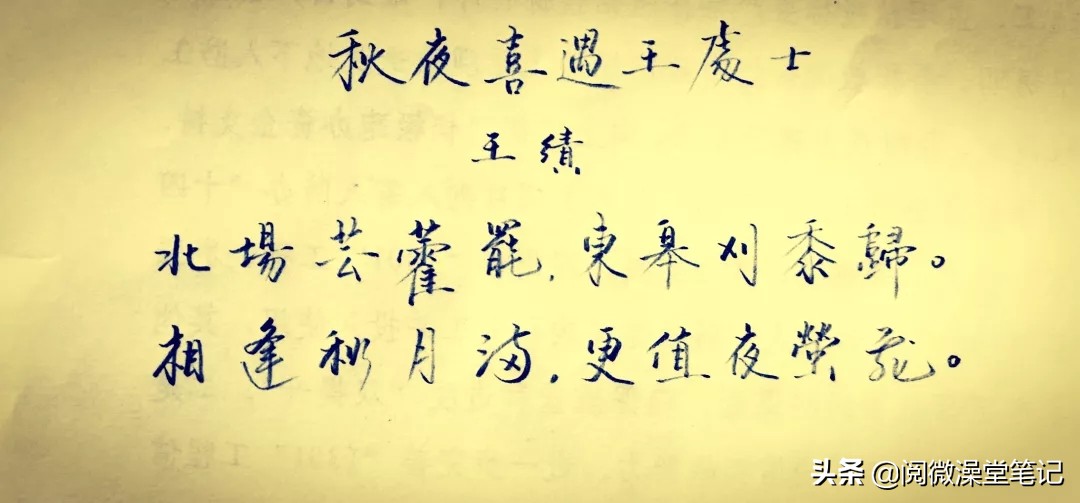 秋夜喜遇王處士
王績
北場芸藿罷，東皋刈黍歸。
相逢秋月滿，更值夜螢飛。
头条 @阅微澡堂笔记